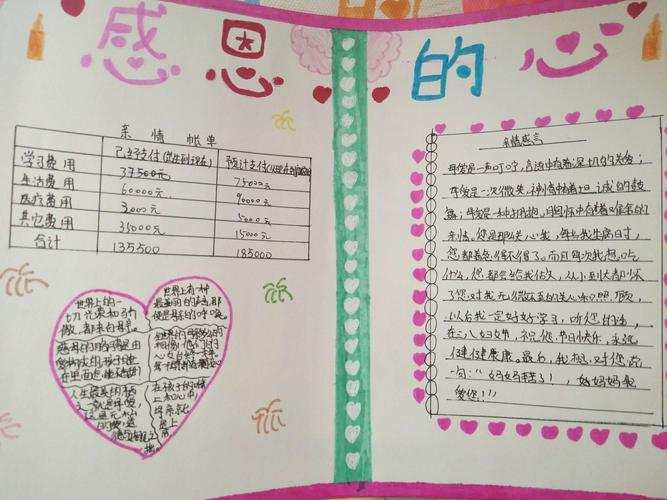 感恩的心
亲情帐单
已经支付(从出生到现在) 预计支付
学习费用 37500元 75000元
生活费用 60000元 90000元
医疗费用 3000元 5000元
其它费用 35000元 15000元
合计 135500 185000
世界上的一
切光荣和骄
傲,都来自母亲
世界上有一种
最美丽的声音,那
便是母亲的呼唤。
慈母的胳膊是由
爱构成的,孩子睡
在里面
人生最美的
在孩子的嘴
上和心中,
母亲就
是上
帝
亲情感言
母爱是一声叮咛,言语中有着深切的关爱;
母爱是一次微笑,神情中有着坦诚的鼓
舞;母爱是一种拥抱,用胸怀中有着难舍的
亲情。您是那么关心我,每当我生病时,
您都着急得不得了。而且每次我想吃
什么,您都会给我做,从小到大都
了您对我无微不至的关心和照顾,
以后我一定好好学习,听您的话,
在三八妇女节,祝您节日快乐,永远
健健康康。最后,我想对您说
一句:“妈妈辛苦了!,妈妈我
爱您!”